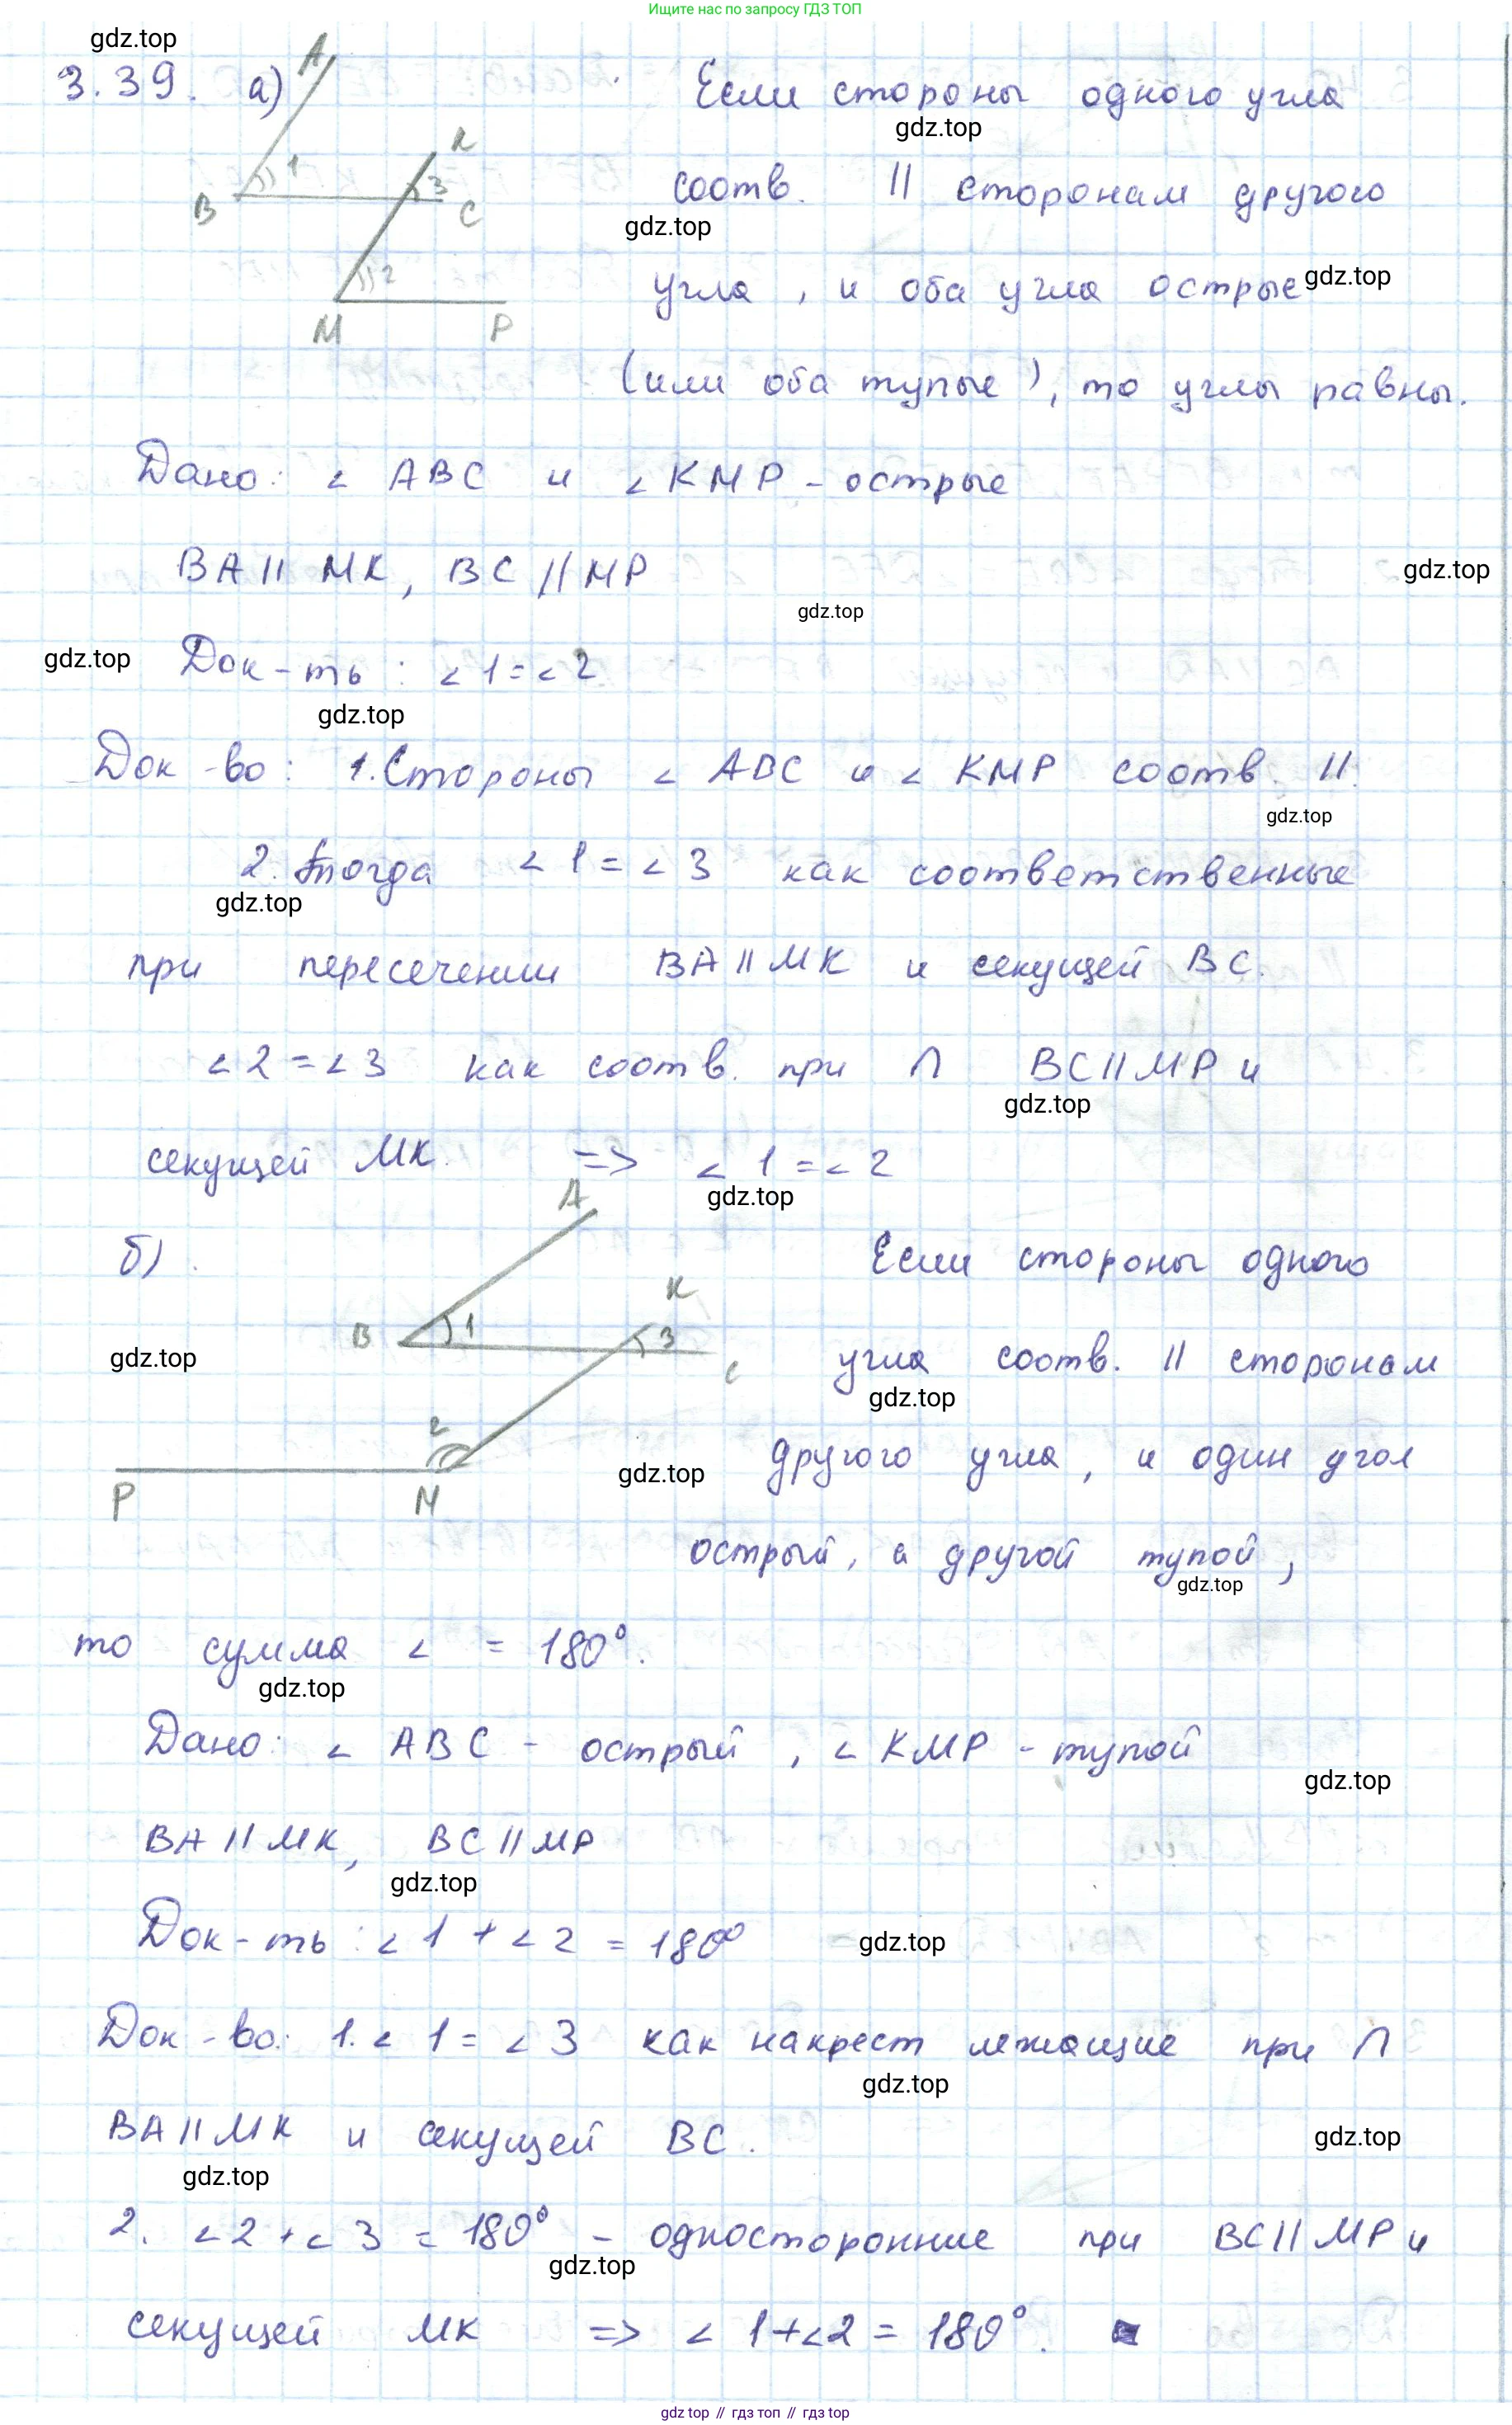 Ищите нас по запросу ГДЗ ТОП
gdz.top
3.39. а)
A
B
1
K
3
C
2
M
P
Если стороны одного угла
gdz.top
соотв. || сторонам другого
gdz.top
угла, и оба угла острые
gdz.top
(или оба тупые), то углы равны.
Дано: ∠ ABC и ∠ KMP - острые
BA || MK, BC || MP
gdz.top
gdz.top
gdz.top
Док-ть: ∠1=∠2
gdz.top
Док-во: 1. Стороны ∠ ABC и ∠ KMP соотв. ||.
gdz.top
2. тогда ∠1=∠3 как соответственные
gdz.top
при пересечении BA || MK и секущей BC.
∠2=∠3 как соотв. при ∩ BC || MP и
gdz.top
секущей MK. => ∠1=∠2
gdz.top
б)
A
B
1
K
3
C
2
P
M
Если стороны одного
gdz.top
угла соотв. || сторонам
gdz.top
другого угла, и один угол
gdz.top
острый, а другой тупой,
gdz.top
то сумма ∠ = 180°.
gdz.top
Дано: ∠ ABC - острый, ∠ KMP - тупой
gdz.top
BA || MK, BC || MP
gdz.top
Док-ть: ∠1+∠2=180°
gdz.top
Док-во: 1. ∠1=∠3 как накрест лежащие при ∩
gdz.top
BA || MK и секущей BC.
gdz.top
gdz.top
2. ∠2+∠3=180° - односторонние при BC || MP и
gdz.top
секущей MK => ∠1+∠2=180°.
gdz.top // гдз топ // гдз top